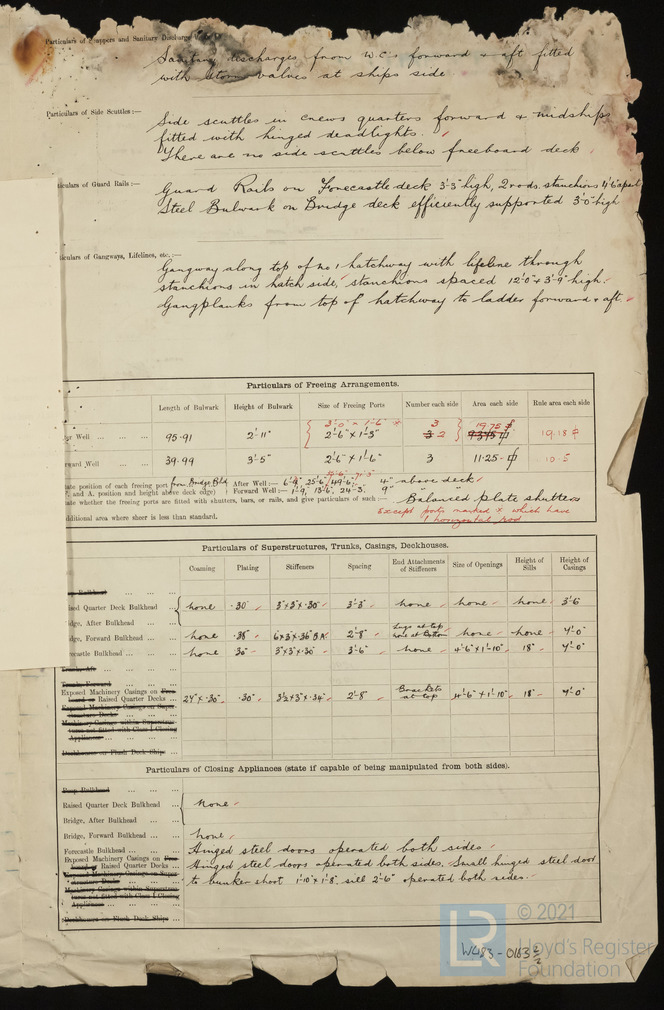 Particulars of Scuppers and Sanitary Discharge
Sanitary discharges from W.C's forward & aft fitted
with storm valves at ships side
Particulars of Side Scuttles :—
Side scuttles in crews quarters forward & midships
fitted with hinged deadlights.
There are no side scuttles below freeboard deck
ticulars of Guard Rails :—
Guard Rails on Forecastle deck 3'-3" high, 2 rods. stanchions 4'6" apart
Steel Bulwark on Bridge deck efficiently supported 3'-0" high
ticulars of Gangways, Lifelines, etc. :—
Gangway along top of No 1 hatchway with lifeline through
stanchions in hatch side, stanchions spaced 12'-0" & 3'-9" high.
Gangplanks from top of hatchway to ladder forward & aft.
Particulars of Freeing Arrangements.
Length of Bulwark Height of Bulwark Size of Freeing Ports Number each side Area each side Rule area each side
3'-0" × 1'-6" × 3 19.75
Well ... ... ... 95.91 2'-11" 2'-6" × 1'-3" 2 19.18
ward Well ... ... 39.99 3'-5" 2'-6" × 1'-6" 3 11.25 10.5
tate position of each freeing port from Bridge Bhd After Well :— 25'-6" 49'-6" 4" above deck
F. and A. position and height above deck edge) Forward Well :— 1'-9", 13'-6", 24'-3" 9"
tate whether the freeing ports are fitted with shutters, bars, or rails, and give particulars of such :— Balanced plate shutters
Except ports marked × which have
1 horizontal rod
dditional area where sheer is less than standard.
Particulars of Superstructures, Trunks, Casings, Deckhouses.
Coaming Plating Stiffeners Spacing End Attachments of Stiffeners Size of Openings Height of Sills Height of Casings
Bulkhead ... ... ...
ised Quarter Deck Bulkhead ... none .30" 3"×3"×.30" 3'-3" none none none 3'6
idge, After Bulkhead ... ...
dge, Forward Bulkhead ... none .38" 6×3×.36 B.A. 2'-8" Lugs at top none at Bottom none none 7'-0"
ecastle Bulkhead ... ... none 30" 3"×3"×.30" 3'-6" none 4'-6"×1'-10" 18" 7'-0"
Trunks, Aft ... ... ...
Trunks, Forward ... ...
Exposed Machinery Casings on Free-
board or Raised Quarter Decks ... 24"×.30" .30" 3½×3"×.34" 2'-8" Brackets at top 4'-6" × 1'-10" 18" 7'-0"
Exposed Machinery Casings on Super-
structure Decks ... ...
Machinery Casings within Superstruc-
tures not fitted with Class I Closing
Appliances ... ... ...
Deckhouses on Flush Deck Ships ...
Particulars of Closing Appliances (state if capable of being manipulated from both sides).
Poop Bulkhead ... ... ...
Raised Quarter Deck Bulkhead ... none
Bridge, After Bulkhead ... ...
Bridge, Forward Bulkhead ... ... none
Forecastle Bulkhead ... ... Hinged steel doors operated both sides
Exposed Machinery Casings on Free-
board or Raised Quarter Decks ... Hinged steel doors operated both sides. Small hinged steel door
Exposed Machinery Casings on Super-
structure Decks ... to bunker shoot 1'-10" × 1'-8" sill 2'-6" operated both sides.
Machinery Casings within Superstruc-
tures not fitted with Class I Closing
Appliances ... ... ...
Deckhouses on Flush Deck Ships ...
LR
© 2021
Lloyd's Register
Foundation
W483-0163 2/2